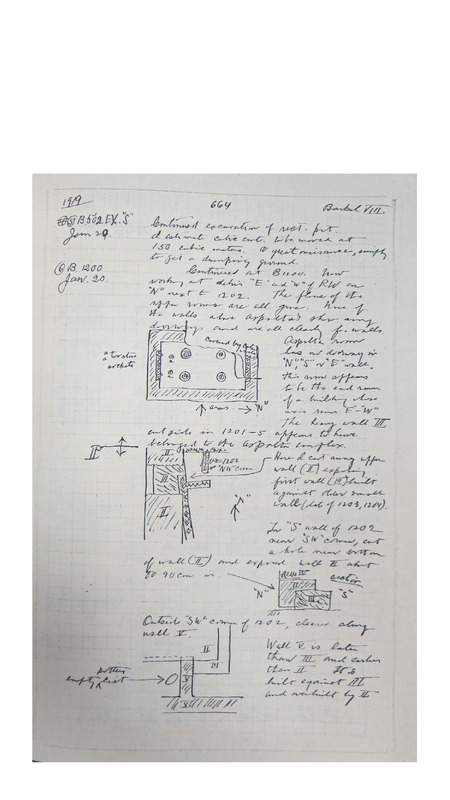 1919
664
Barkal VIII.
B 502 EX. "S"
Jan. 20.
Continued excavation of rect. pit.
I estimate cubic cont. to be moved at
150 cubic meters. A great nuisance, simply
to get a dumping ground.
@ B. 1200
Jan. 20.
Continued at B1200. Now
working at debris "E" and "W" of RW on
"N" next E 1202. The floors of the
upper rooms are all gone. None of
the walls above show any
doorways and are all clearly f. walls.
covered by
room
has no doorway in
"N", "S" or "E" wall.
this room appears
to be the end room
of a building whose
axis runs E-W"
The heavy wall III
sockets
axis → "N"
outside in 1201-5 appears to have
belonged to the complex.
1202
"NW" corn.
Here I cut away upper
wall (II) exposing
first wall (III) built
against older small
wall (E of 1203, 1204).
II
III
"N"
In "S" wall of 1202
near "SW" corner, cut
a hole near bottom
of wall (II) and exposed wall III about
80-90 cm in
section
"N"
"S"
III
Outside "SW" corner of 1202, cleared along
wall V.
II
III
V
pottery
empty
Wall V is later
than III and earlier
than II. It is
built against III
and overbuilt by II